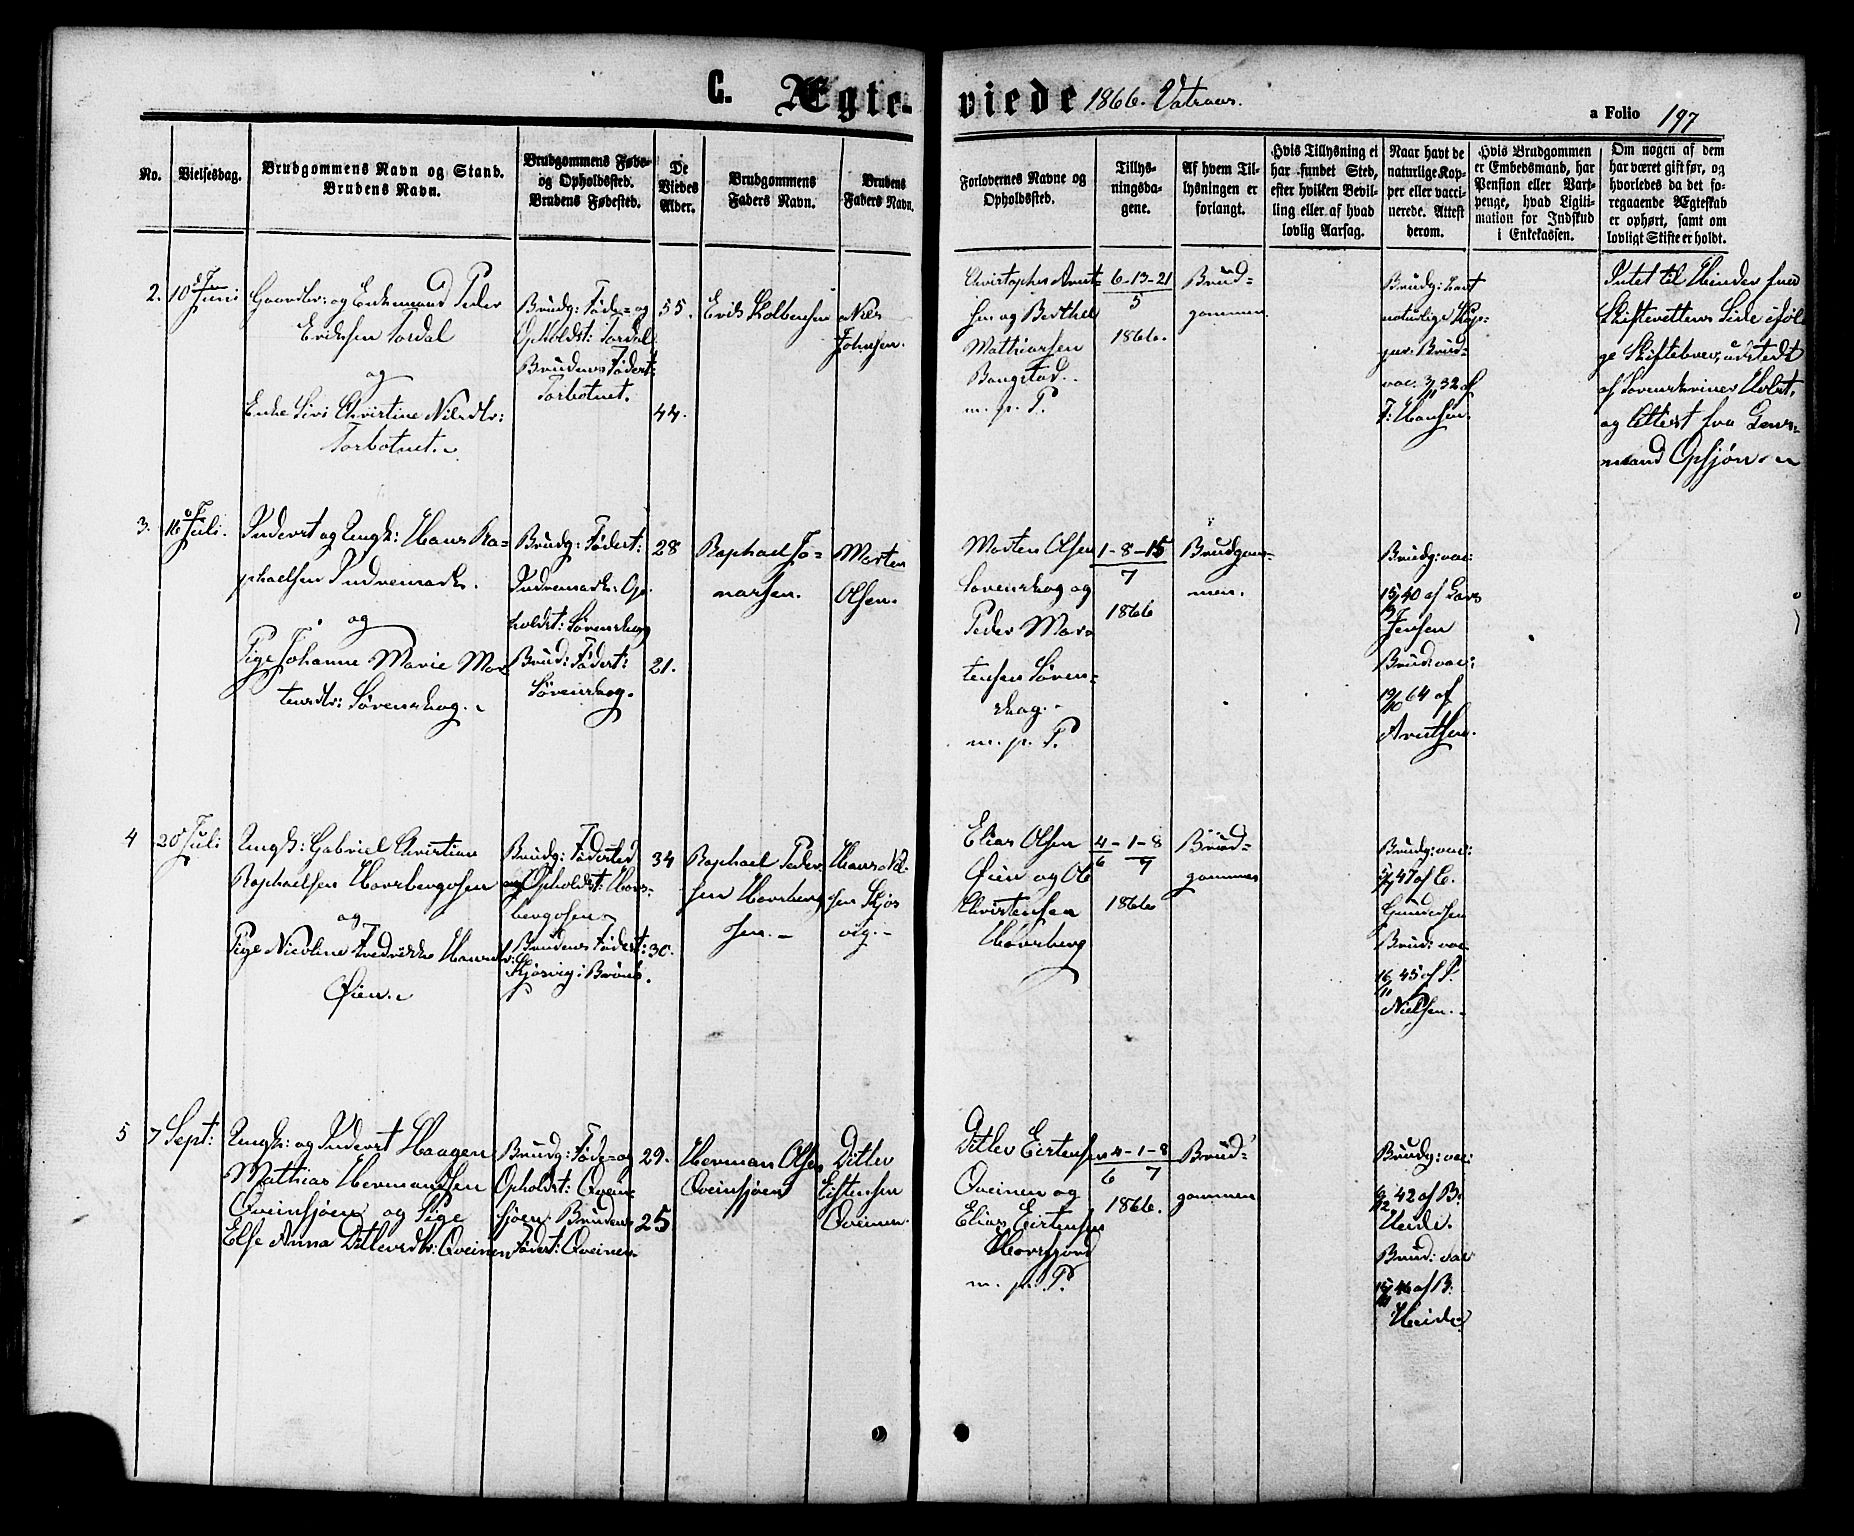 C. Ægte-viede 1866.
a Folio 197
No.
Vielsesdag.
Brudgommens Navn og Stand.
Brudens Navn.
Brudgommens Føde-
og Opholdsted.
Brudens Fødested.
De
Viedes
Alder.
Brudgommens
Faders Navn.
Brudens
Faders Navn.
Forlovernes Navne og
Opholdssted.
Tillys-
ningsda-
gene.
Af hvem Til-
lysningen er
forlangt.
Hvis Tillysning ei
har fundet Sted,
efter hvilken Bevil-
ling eller af hvad
lovlig Aarsag.
Naar havt de
naturlige Kop-
per eller vacci-
nerede. Attest
derom.
Hvis Brudgommen
er Embedsmand, har
Pension eller Vart-
penge, hvad Ligiti-
mation for Indskud
i Enkekassen.
Om nogen af dem
har været gift før, og
hvorledes da det fo-
regaaende Ægteskab
er ophørt, samt om
lovligt Skifte er holdt.
2.
10 Juni
Gaardbr: og Enkemand Peder
Eriksen Tordal
og
Enke Siri Christine Nilsdtr:
Torbotnet.
Brudg: Føde- og
Opholdst: Tordal
Brudens Fødest:
Torbotnet.
55.
44.
Erik Kolbensen
Niels
Johnsen.
Christopher Arnt-
sen og Berthel
Mathiassen
Bangstad.
m. p. P.
6-13-21
5
1866.
Brud-
gommen
Brudg: havt
naturlige Kop-
per. Brud-
vac. 3/7 32 af
T: Hansen.
Intet til Hinder fra
Skifterettens Side iføl-
ge Skiftebrev, udstedt
af Sorenskriver Holst,
og Attest fra Lens-
mand Opsjøn
3.
16 Juli.
Inderst og Ungk: Hans Ra-
phaelsen Indremark.
og
Pige Johanne Marie Mor-
tensdtr: Sørenskog.
Brudg: Fødest:
Indremark. Op-
holdst: Sørenskog
Brud: Fødest:
Sørenskog.
28
21.
Raphael Jo-
narsen.
Morten
Olsen.
Morten Olsen
Sørenskog og
Peder Mor-
tensen Søren-
skog.
m. p. P.
1-8-15
7
1866
Brudgom-
men.
Brudg: vac:
15/7 40 af Lars
Jensen
Brud: vac:
19/10 64 af
Arntsen.
4
20 Juli
Ungk: Gabriel Christian
Raphaelsen Havsbergosen
og
Pige Nicoline Fredrikke Hansdtr:
Øien.
Brudg: Fødested
og Opholdst: Havs-
bergosen
Brudens Fødest:
Skjørvig i Brønø.
34
30.
Raphael Peder-
sen Havsberg-
osen.
Hans Nil-
sen Skjør-
vig.
Elias Olsen
Øien og Ole
Christensen
Havsberg
4-1-8
6 7
1866
Brud-
gommen
Brudg: vac:
47 af C.
Gundersen
Brud: vac
16/11 45 af P.
Nielsen.
5
7 Sept:
Ungk: og Inderst Haagen
Mathias Hermandsen
Qveinsjøen og Pige
Else Anna Ditlevsdtr: Qveinen
Brudg: Føde- og
Opholdst: Qvein-
sjøen. Brudens
Fødest: Qveinen.
29.
25
Herman Olsen
Qveinsjøen
Ditlev
Eistensen
Qveinen.
Ditlev Eistensen
Qveinen og
Elias Eistensen
Havsfjord
m. p. P.
4-1-8
6 7
1866.
Brud-
gommen
Brudg: vac:
42 af B.
Heide.
Brud: vac
15/11 46 af B.
Heide